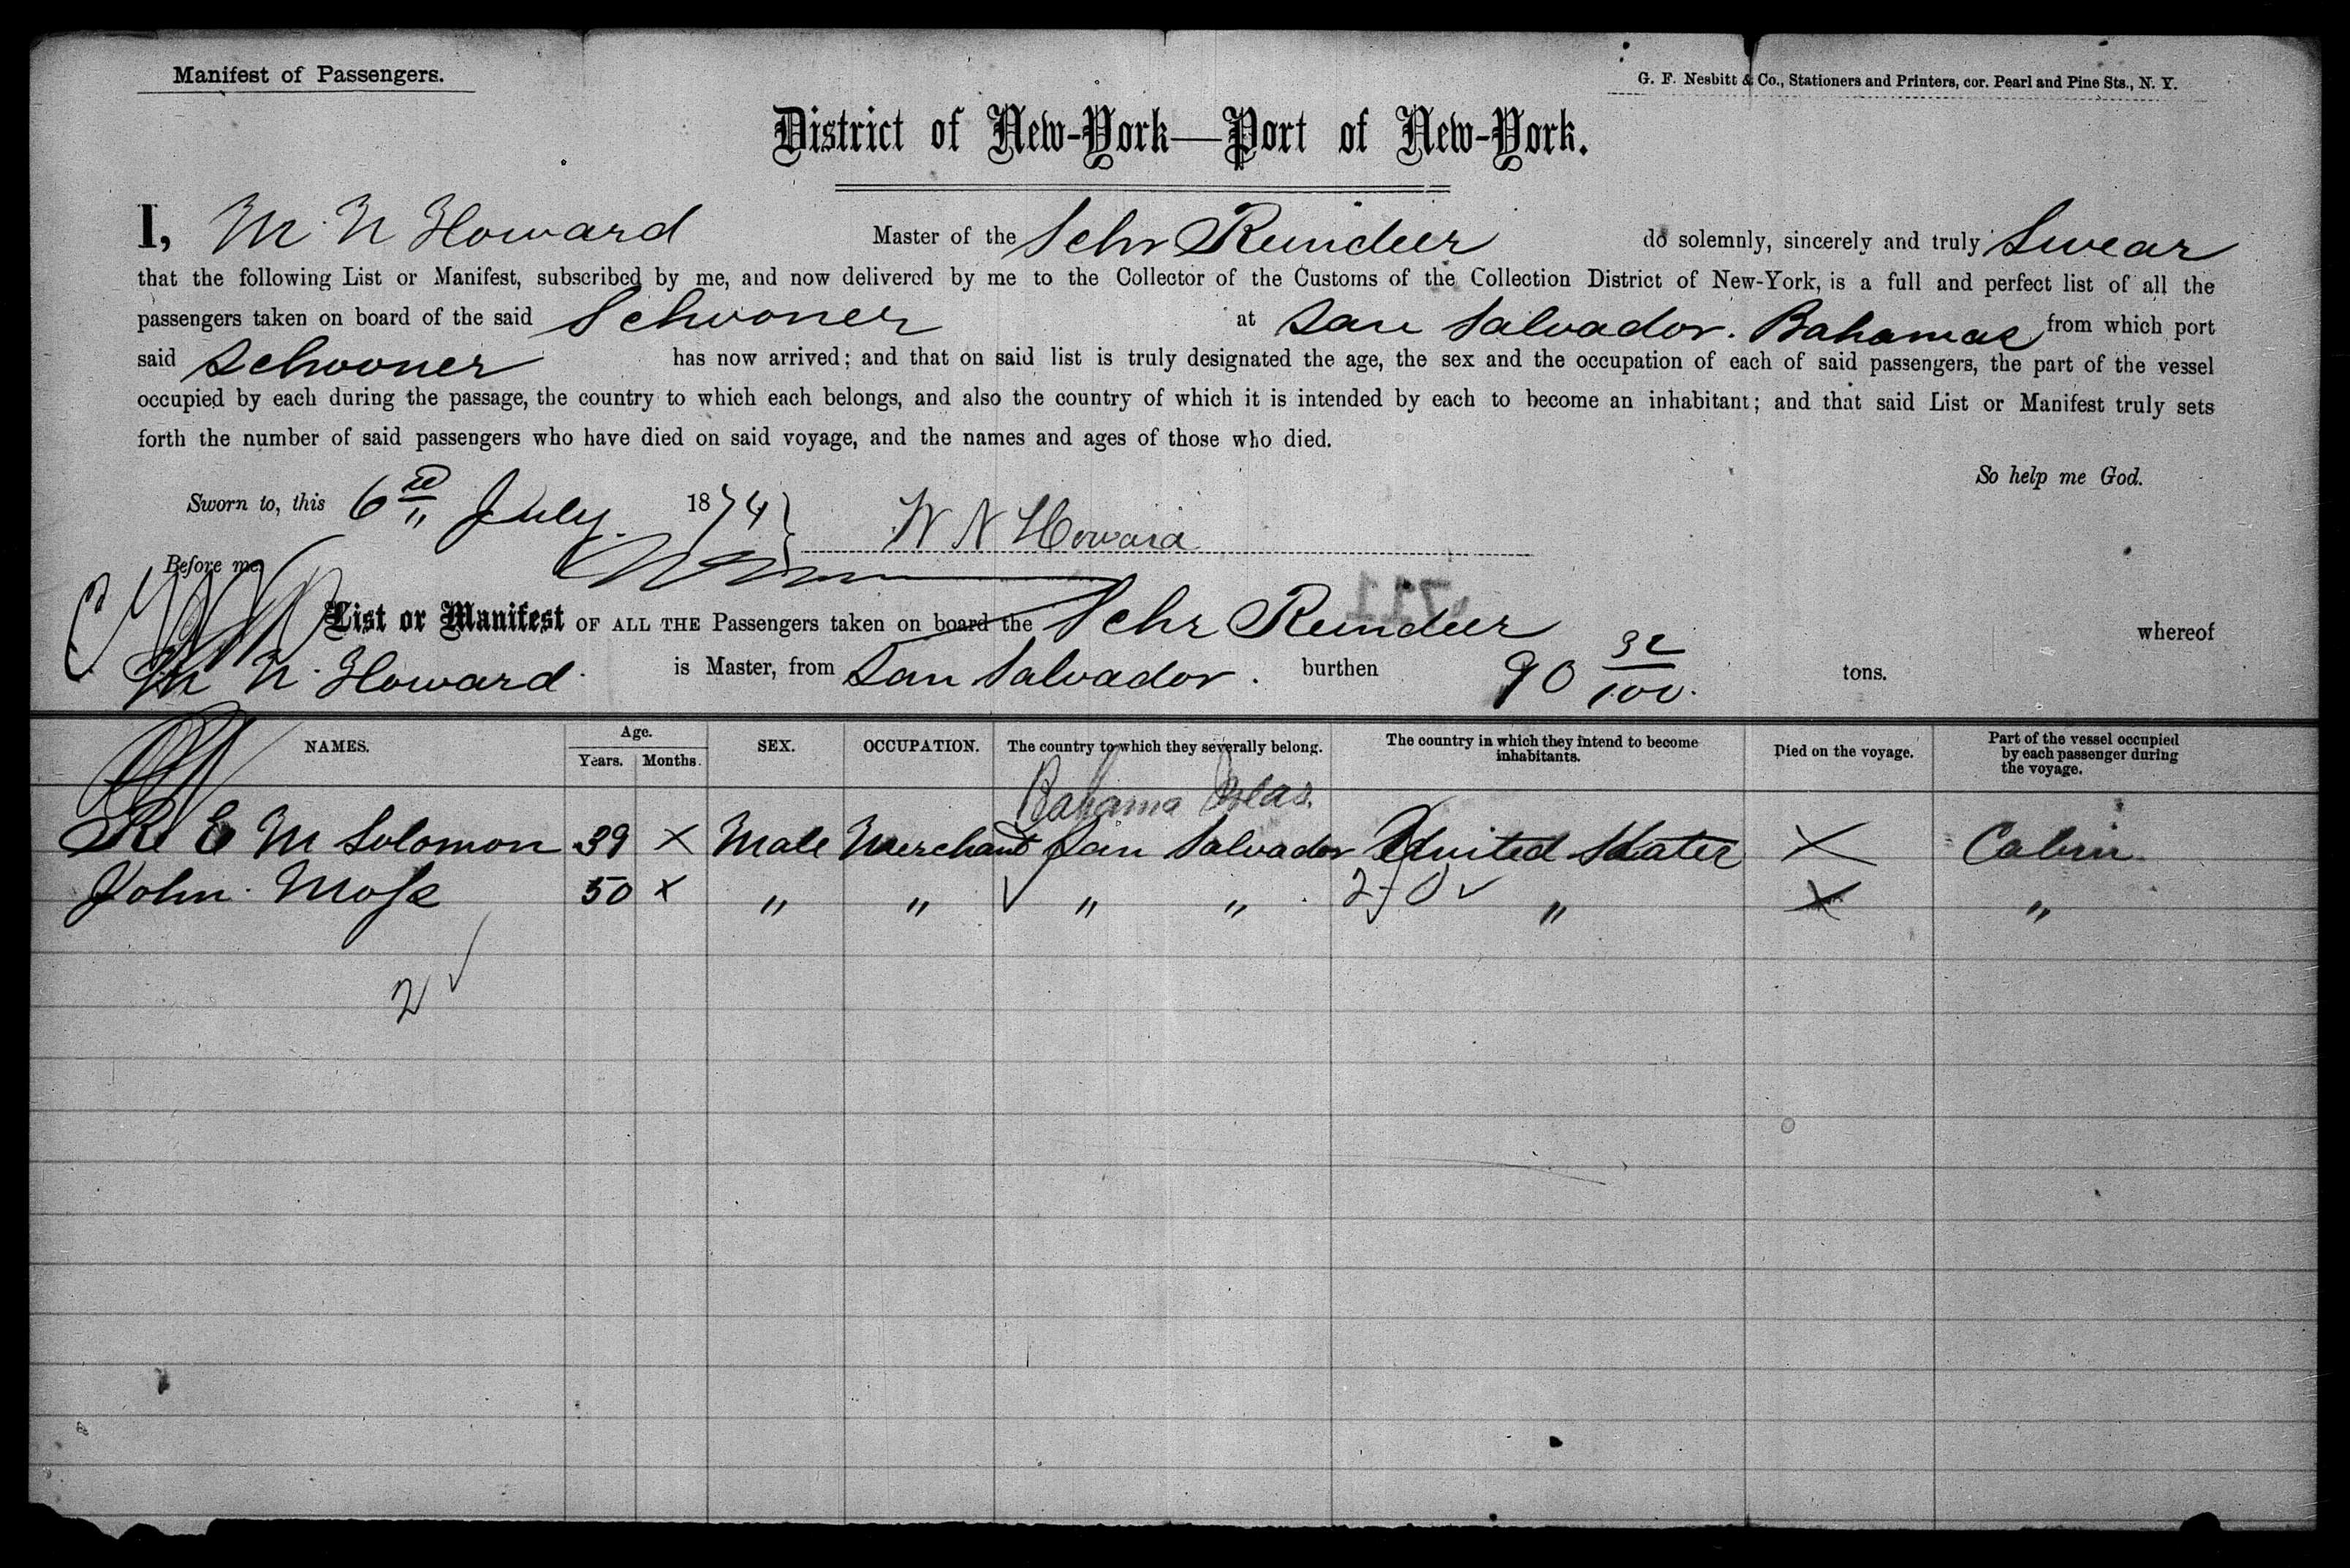 Manifest of Passengers.
G. F. Nesbitt & Co., Stationers and Printers, cor. Pearl and Pine Sts., N. Y.
District of New-York—Port of New-York.
I, M. N Howard Master of the Schr Reindeer do solemnly, sincerely and truly swear
that the following List or Manifest, subscribed by me, and now delivered by me to the Collector of the Customs of the Collection District of New-York, is a full and perfect list of all the
passengers taken on board of the said Schooner at San Salvador. Bahamas from which port
said Schooner has now arrived; and that on said list is truly designated the age, the sex and the occupation of each of said passengers, the part of the vessel
occupied by each during the passage, the country to which each belongs, and also the country of which it is intended by each to become an inhabitant; and that said List or Manifest truly sets
forth the number of said passengers who have died on said voyage, and the names and ages of those who died.
So help me God.
Sworn to, this 6 July. 1874 } W N Howard
Before me,
List or Manifest OF ALL THE Passengers taken on board the Schr Reindeer whereof
M N. Howard. is Master, from San Salvador. burthen 90 32/100. tons.
NAMES. Age. Years. Months. SEX. OCCUPATION. The country to which they severally belong. The country in which they intend to become inhabitants. Died on the voyage. Part of the vessel occupied by each passenger during the voyage.
Bahama
E M Solomon 39 X Male Merchant San Salvador United States X Cabin
John Moss 50 X " " " " " X "
2